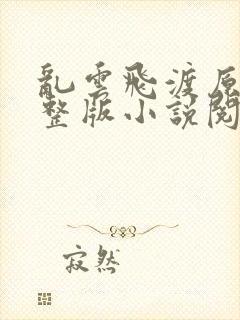 亂雲飛渡原
整版小說閱
寂然